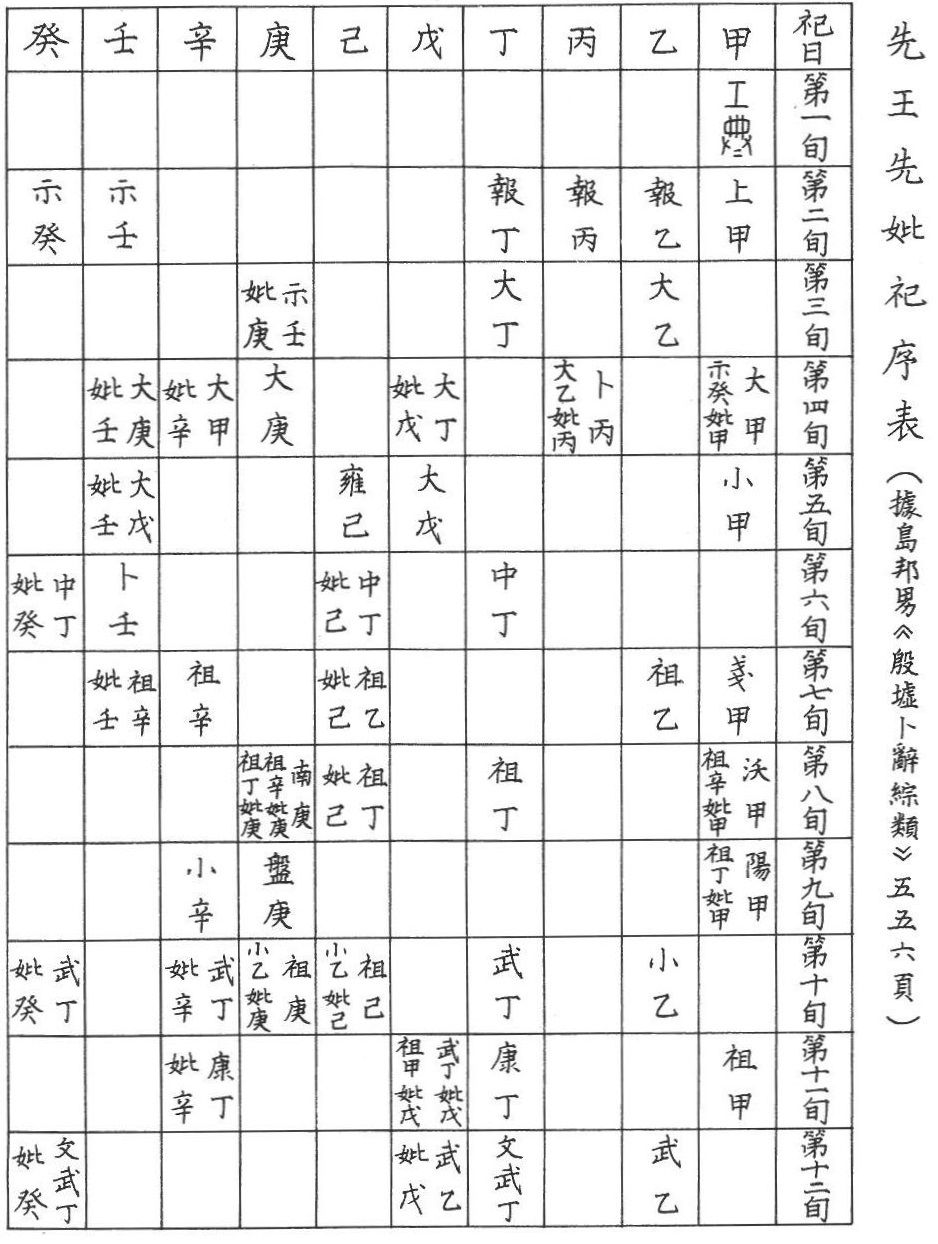 先王先妣祀序表（據島邦男《殷墟卜辭綜類》五五六頁）
祀日 甲 乙 丙 丁 戊 己 庚 辛 壬 癸
第一旬 工
第二旬 上甲 報乙 報丙 報丁 示壬 示癸
第三旬 大乙 大丁 示壬妣庚
第四旬 大甲 示癸妣甲 卜丙 大乙妣丙 大丁妣戊 大庚 大甲妣辛 大庚妣壬
第五旬 小甲 大戊 雍己 大戊妣壬
第六旬 中丁 中丁妣己 卜壬 中丁妣癸
第七旬 戔甲 祖乙 祖乙妣己 祖辛 祖辛妣壬
第八旬 沃甲 祖辛妣甲 祖丁 祖丁妣己 南庚 祖辛妣庚 祖丁妣庚
第九旬 陽甲 祖丁妣甲 盤庚 小辛
第十旬 小乙 武丁 祖己 小乙妣己 祖庚 小乙妣庚 武丁妣辛 武丁妣癸
第十一旬 祖甲 康丁 武丁妣戊 祖甲妣戊 康丁妣辛
第十二旬 武乙 文武丁 武乙妣戊 文武丁妣癸